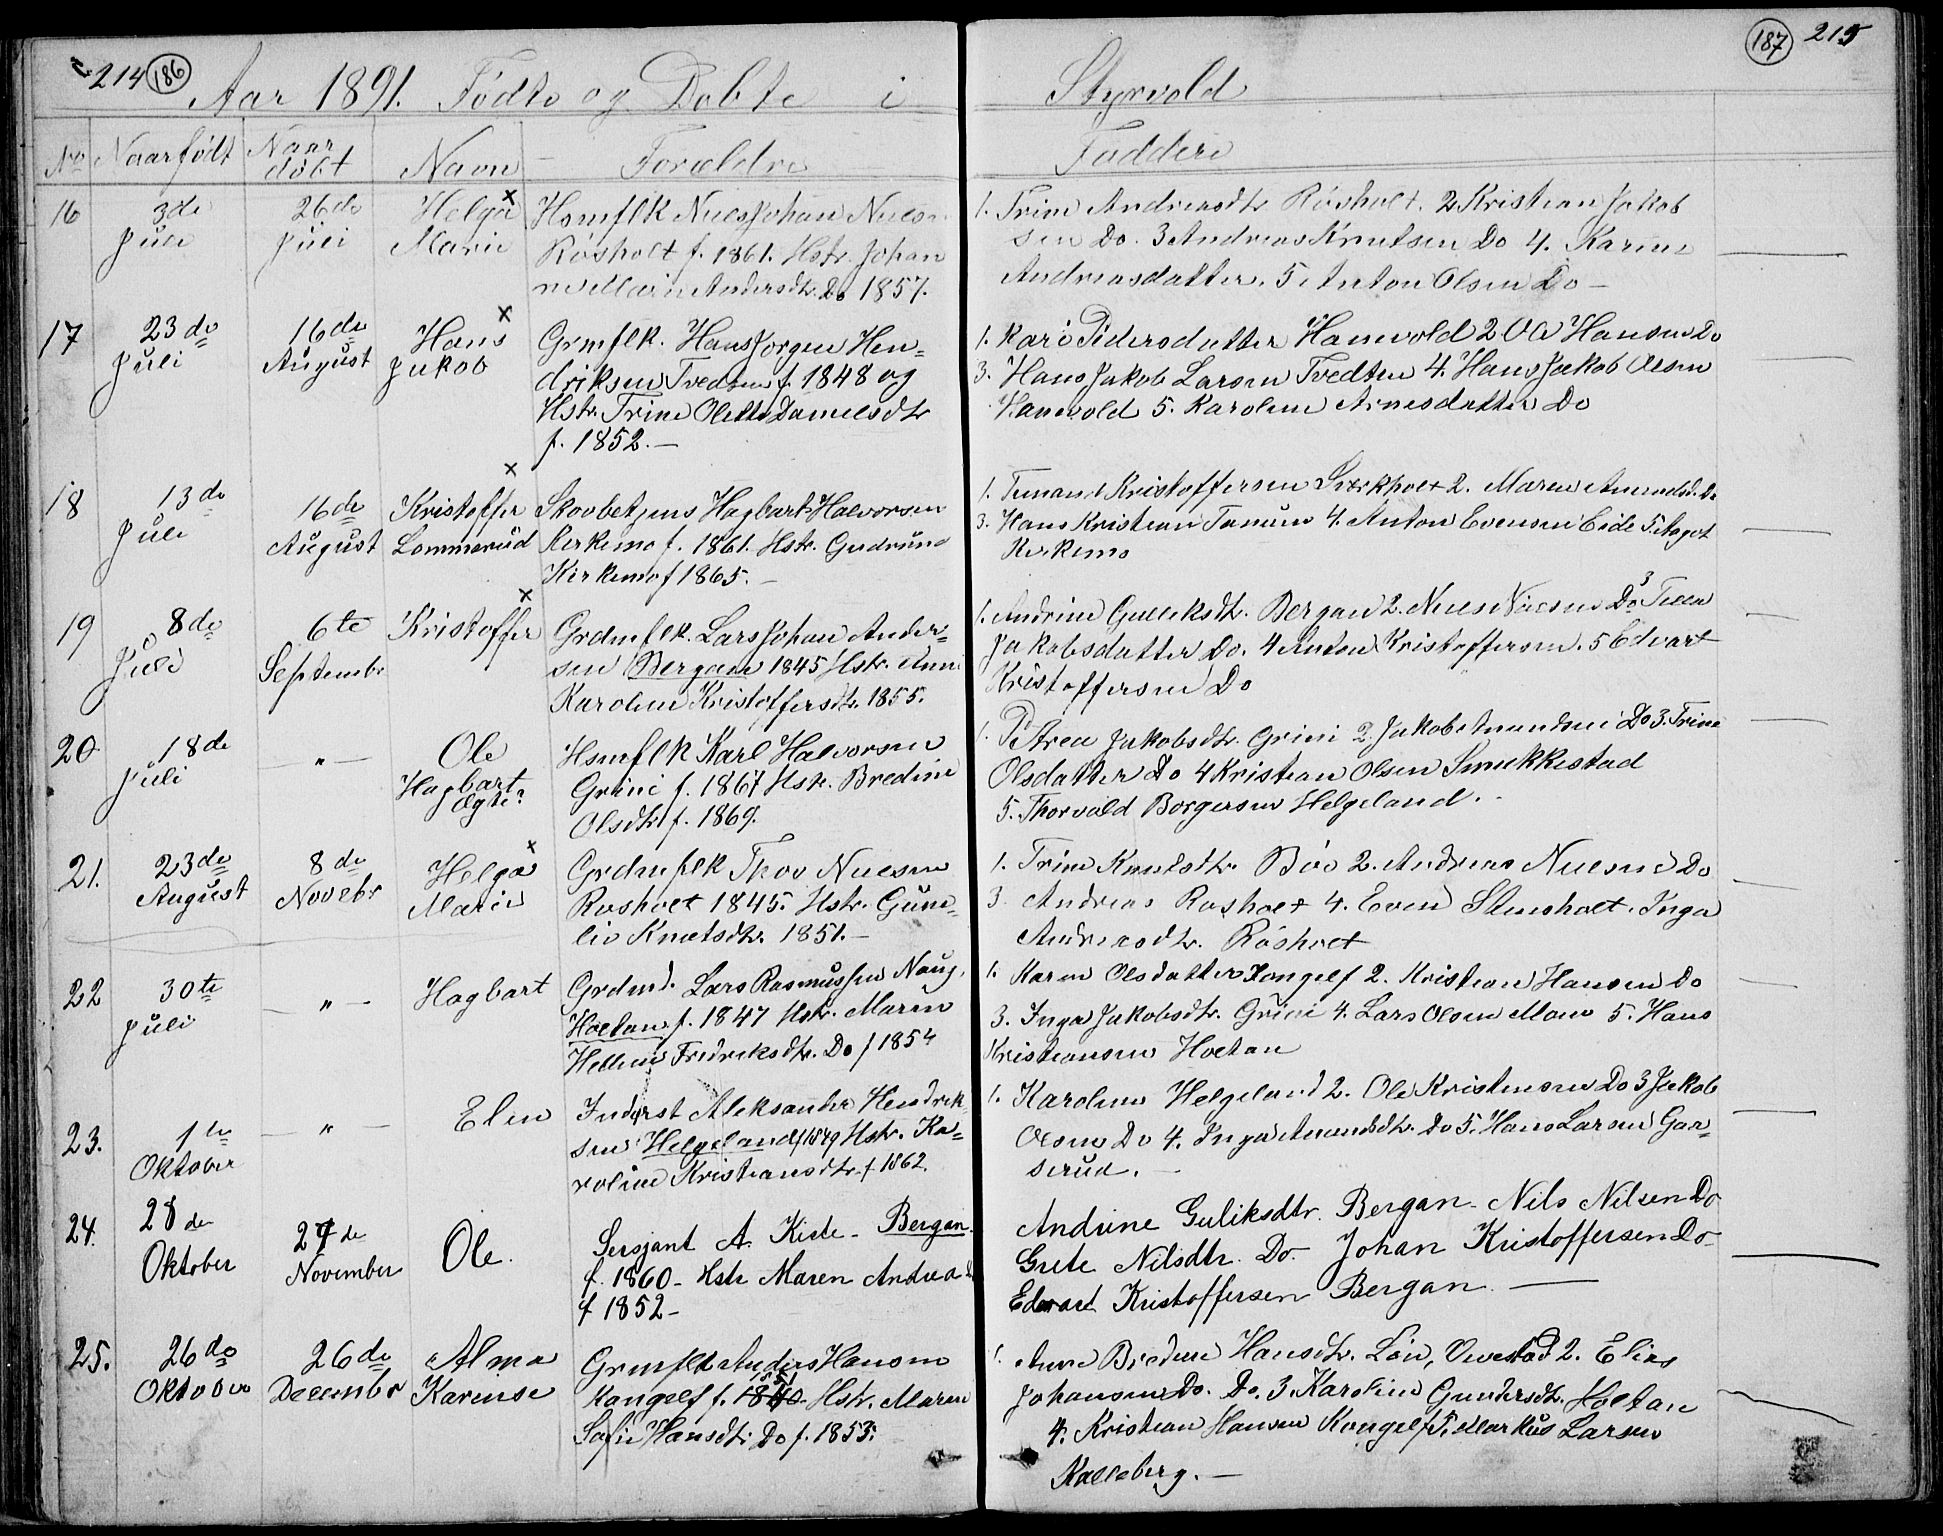 214 186
Aar 1891. Fødte og Døbte i Styrvold
187 215
No Naar født Naar døbt Navn Forældre
Faddere
16 3de Juli 26de Juli Helga Marie x
Hsmflk Niels Johan Niels
Røsholt f. 1861. Hstr. Johan
ne Marie Andersdtr. Do 1857.
1. Trine Andreasdtr Røsholt. 2 Kristian Jakob
sen Do. 3 Andreas Knutsen Do 4. Karine
Andreasdatter. 5 Anton Olsen Do –
17 23de Juli 16de August Hans Jakob x
Grmflk. Hans Jørgen Hen=
driksen Tvedten f. 1848 og
Hstr. Trine Olette Danielsdtr
f. 1852. –
1. Kari Pedersdatter Hanevold 2 Ole Hansen Do
3. Hans Jakob Larsen Tvedten 4. Hans Jakob Olsen
Hanevold 5. Karoline Arnesdatter Do
18 13de Juli 16de August Kristoffer Lommerud x
Skovbetjens Hagbart Halvorsen
Kirkemo f. 1861. Hstr. Gudrune
Kirkemo f 1865. –
1. Kristoffersen 2. Maren
3. Hans Kristian Tanum 4. Anton Evensen Eide 5. Aaget
Kirkemo
19 8de Juli 6te Septembr Kristoffer x
Grdmflk. Lars Johan Ander=
sen Bergan 1845 Hstr. Anne
Karoline Kristoffersdtr. 1855.
1. Andrine Gulleksdtr. Bergan 2. Niels Nielsen Do 3 Tilla
Jakobsdatter Do. 4 Anton Kristoffersen. 5 Edvart
Kristoffersen Do
20 18de Juli – " – Ole Hagbart Ægte?
Hsmflk Karl Halvorsen
Grini f. 1867 Hstr. Bredine
Olsdtr f. 1869.
1. Petrea Jakobsdtr. Grini 2. Jakob Amundsen Do 3. Trine
Olsdatter Do 4 Kristian Olsen Smukkestad
5. Thorvald Borgersen Helgeland.
21. 23de August 8de Novebr Helga Marie x
Grdmflk Thov Nielsen
Rosholt 1845. Hstr. Gun=
liv Knutsdtr. 1851. –
1. Trine Knutsdtr. Bøe 2. Andreas Nielsen Do
3. Andreas Rosholt 4. Even Stensholt. Inga
Andreasdtr. Røsholt
22 30te Juli – " – Hagbart
Grdmd. Lars Rasmussen Naug.
Holtan f. 1847 Hstr. Maren
Helline Fredriksdtr. Do f 1854
1. Karen Olsdatter Kongelf 2. Kristian Hansen Do
3. Inga Jakobsdtr. Grini 4. Lars Olsen Moen 5. Hans
Kristiansen Holtan
23. 1te Oktober – " – Elen
Inderst Aleksander Hendrik
sen Helgeland f 1849 Hstr. Ka=
roline Kristiansdtr. f 1862.
1. Karoline Helgeland 2. Ole Kristensen Do 3 Jakob
Olsen Do 4. Inga Amundsdtr. Do 5. Hans Larsen Gar=
serud. –
24. 28de Oktober 29de November Ole.
Sersjant A. Kiste – Bergan.
f. 1860 – Hstr Maren Andrea
f 1852 –
Andrine Guliksdtr. Bergan – Nils Nilsen Do
Grete Nilsdtr. Do – Johan Kristoffersen Do –
Edvart Kristoffersen Bergan –
25. 26de Oktober 26de Decembr Alma Karinse
Grmflk Anders Hansen
Kongelf f. 1840 1851 Hstr. Maren
Sofie Hansdtr. Do f. 1853.
1. Anne Bredine Hansdtr. Løn, 2. Elias
Johansen Do. Do. 3. Karoline Gundersdtr. Holtan
4. Kristian Hansen Kongelf 5. Markus Larsen
Kalleberg. –